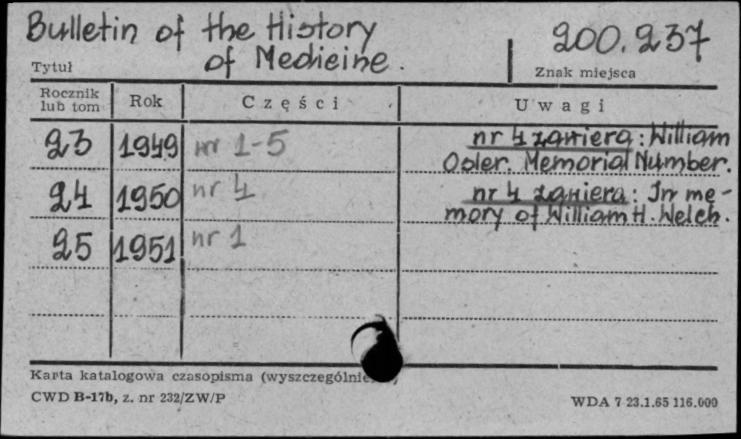 Bulletin of the History
of Medicine.
Tytuł
200.237
Znak miejsca
Rocznik lub tom Rok Części Uwagi
23 1949 nr 1-5 nr 4 zawiera: William
Osler. Memorial Number.
24 1950 nr 4 nr 4 zawiera: In me-
mory of William H. Welch.
25 1951 nr 1
Karta katalogowa czasopisma
CWD B-17b, z. nr 232/ZW/P
WDA 7 23.1.65 116.000